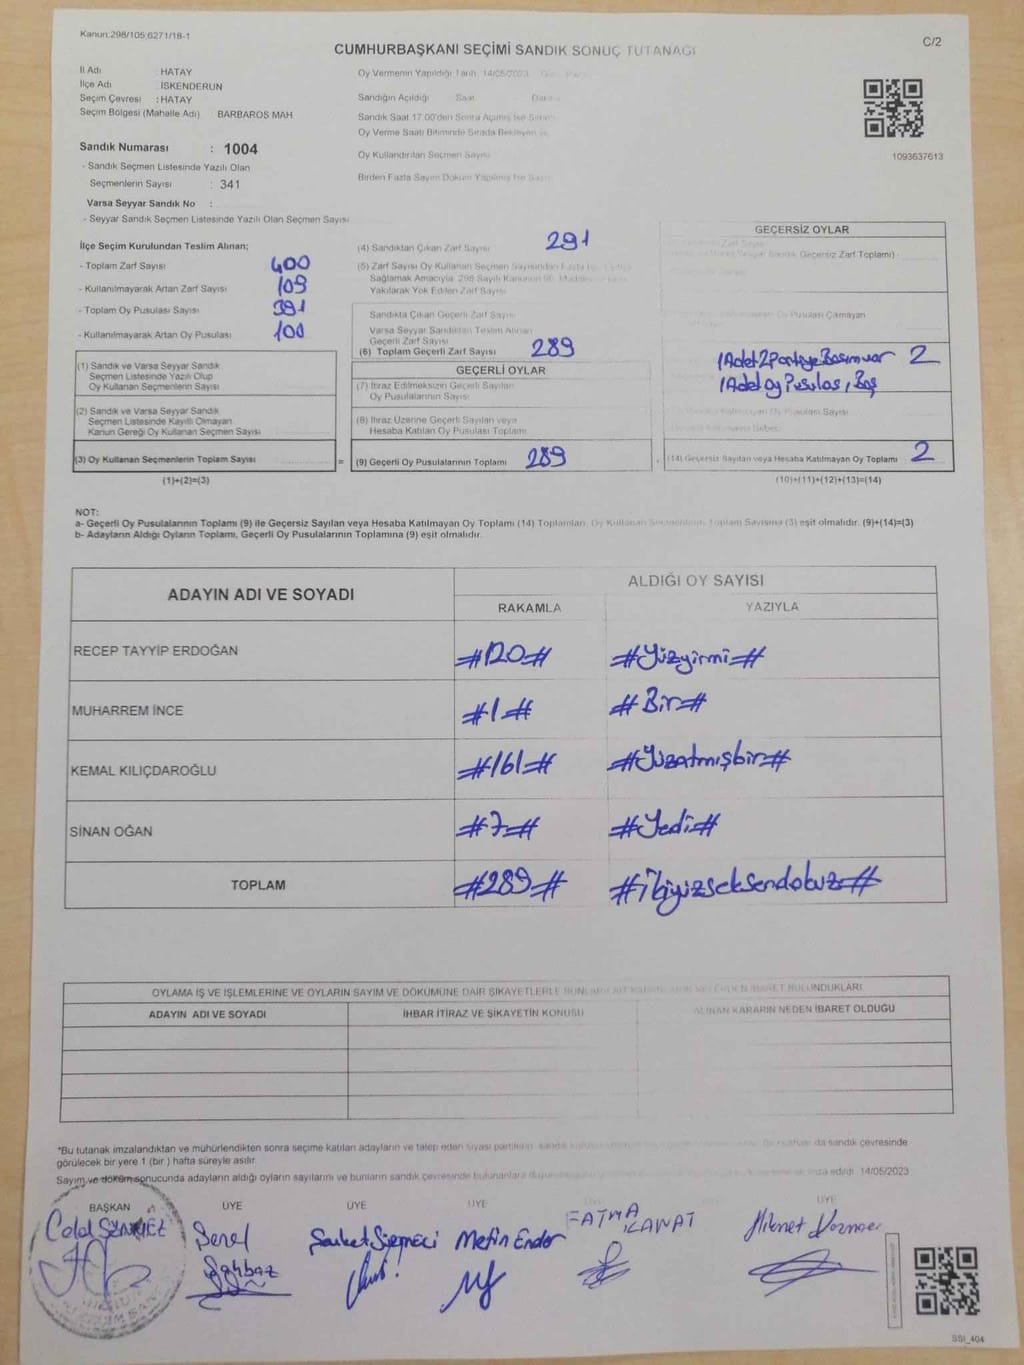 Kanun.298/105,6271/18-1
C/2
CUMHURBAŞKANI SEÇİMİ SANDIK SONUÇ TUTANAĞI
İl Adı : HATAY
İlçe Adı : İSKENDERUN
Seçim Çevresi : HATAY
Seçim Bölgesi (Mahalle Adı) BARBAROS MAH
Sandık Numarası : 1004
- Sandık Seçmen Listesinde Yazılı Olan
Seçmenlerin Sayısı : 341
Varsa Seyyar Sandık No :
- Seyyar Sandık Seçmen Listesinde Yazılı Olan Seçmen Sayısı
Oy Vermenin Yapıldığı Tarih 14/05/2023
Sandığın Açıldığı Saat
Sandık Saat 17.00'den Sonra Açılmış İse
Oy Verme Saati Bitiminde Sırada Bekleyen
Oy Kullandırılan Seçmen Sayısı
Birden Fazla Sayım Döküm Yapılmış İse
1093637613
İlçe Seçim Kurulundan Teslim Alınan;
- Toplam Zarf Sayısı 400
- Kullanılmayarak Artan Zarf Sayısı 109
- Toplam Oy Pusulası Sayısı 391
- Kullanılmayarak Artan Oy Pusulası 100
(1) Sandık ve Varsa Seyyar Sandık
Seçmen Listesinde Yazılı Olup
Oy Kullanan Seçmenlerin Sayısı
(2) Sandık ve Varsa Seyyar Sandık
Seçmen Listesinde Kayıtlı Olmayan
Kanun Gereği Oy Kullanan Seçmen Sayısı
(3) Oy Kullanan Seçmenlerin Toplam Sayısı =
(1)+(2)=(3)
(4) Sandıktan Çıkan Zarf Sayısı 291
(5) Zarf Sayısı Oy Kullanan Seçmen Sayısından Fazla İse
Sağlamak Amacıyla 298 Sayılı Kanunun
Yakılarak Yok Edilen Zarf Sayısı
Sandıkta Çıkan Geçerli Zarf Sayısı
Varsa Seyyar Sandıktan Teslim Alınan
Geçerli Zarf Sayısı
(6) Toplam Geçerli Zarf Sayısı 289
GEÇERLİ OYLAR
(7) İtiraz Edilmeksizin Geçerli Sayılan
Oy Pusulalarının Sayısı
(8) İtiraz Üzerine Geçerli Sayılan veya
Hesaba Katılan Oy Pusulası Toplamı
(9) Geçerli Oy Pusulalarının Toplamı 289
GEÇERSİZ OYLAR
Sandık Geçersiz Zarf Toplamı)
Oy Pusulası Çıkmayan
1 Adet 2 Partiye Basım var 2
1 Adet oy Pusulası Boş
(14) Geçersiz Sayılan veya Hesaba Katılmayan Oy Toplamı 2
(10)+(11)+(12)+(13)=(14)
NOT:
a- Geçerli Oy Pusulalarının Toplamı (9) ile Geçersiz Sayılan veya Hesaba Katılmayan Oy Toplamı (14) Toplamları, Oy Kullanan Seçmenlerin Toplam Sayısına (3) eşit olmalıdır. (9)+(14)=(3)
b- Adayların Aldığı Oyların Toplamı, Geçerli Oy Pusulalarının Toplamına (9) eşit olmalıdır.
ADAYIN ADI VE SOYADI
ALDIĞI OY SAYISI
RAKAMLA YAZIYLA
RECEP TAYYİP ERDOĞAN #120# #Yüzyirmi#
MUHARREM İNCE #1# #Bir#
KEMAL KILIÇDAROĞLU #161# #Yüzatmışbir#
SİNAN OĞAN #7# #Yedi#
TOPLAM #289# #İkiyüzseksendokuz#
OYLAMA İŞ VE İŞLEMLERİNE VE OYLARIN SAYIM VE DÖKÜMÜNE DAİR ŞİKAYETLERLE
ADAYIN ADI VE SOYADI İHBAR İTİRAZ VE ŞİKAYETİN KONUSU ALINAN KARARIN NEDEN İBARET OLDUĞU
*Bu tutanak imzalandıktan ve mühürlendikten sonra seçime katılan adayların ve talep eden siyasi partilerin da sandık çevresinde
görülecek bir yere 1 (bir) hafta süreyle asılır.
Sayım ve döküm sonucunda adayların aldığı oyların sayılarını ve bunların sandık çevresinde bulunanlara edildi 14/05/2023
BAŞKAN ÜYE ÜYE ÜYE ÜYE ÜYE
Metin Ender
FATMA
KANAT
SSI_404